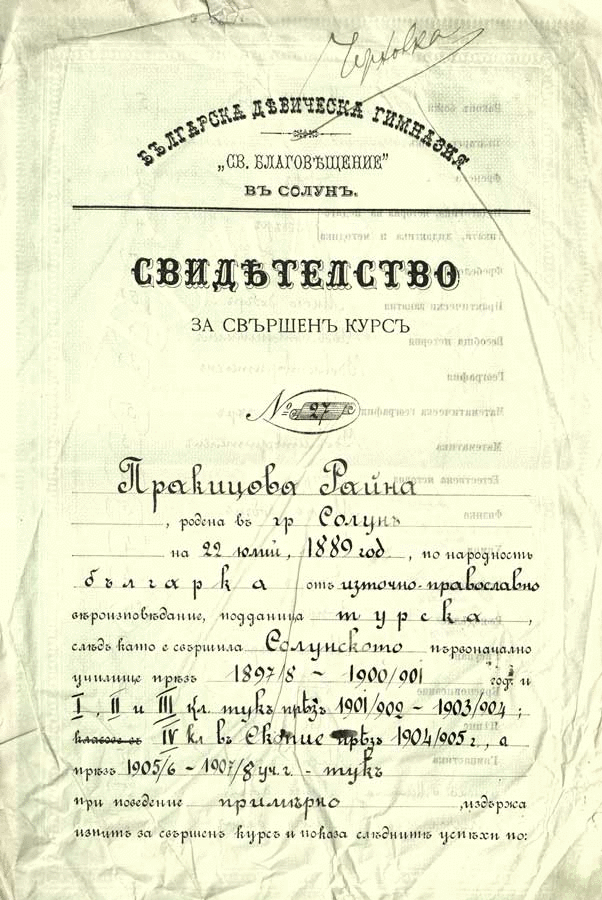 Черновка
БЪЛГАРСКА ДѢВИЧЕСКА ГИМНАЗИЯ
„СВ. БЛАГОВѢЩЕНИЕ"
ВЪ СОЛУНЪ.
СВИДѢТЕЛСТВО
ЗА СВЪРШЕНЪ КУРСЪ
№ 27
Пракицова Райна
, родена въ гр Солунъ
на 22 юлий, 1889 год , по народность
българка отъ източно-православно
вѣроизповѣдание, подданица турска ,
слѣдъ като е свършила Солунското първоначално
училище прѣзъ 1897/8 – 1900/901 год. и
I, II и III кл. тукъ прѣзъ 1901/902 – 1903/904;
IV кл въ Скопие прѣзъ 1904/905 г, а
прѣзъ 1905/6 – 1907/8 уч. г. – тукъ
при поведение примѣрно , издържа
изпитъ за свършенъ курсъ и показа слѣднитѣ успѣхи по: